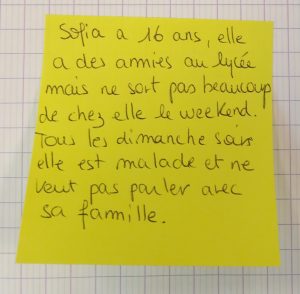 Sofia a 16 ans, elle
a des amies au lycée
mais ne sort pas beaucoup
de chez elle le weekend.
Tous les dimanche soirs
elle est malade et ne
veut pas parler avec
sa famille.